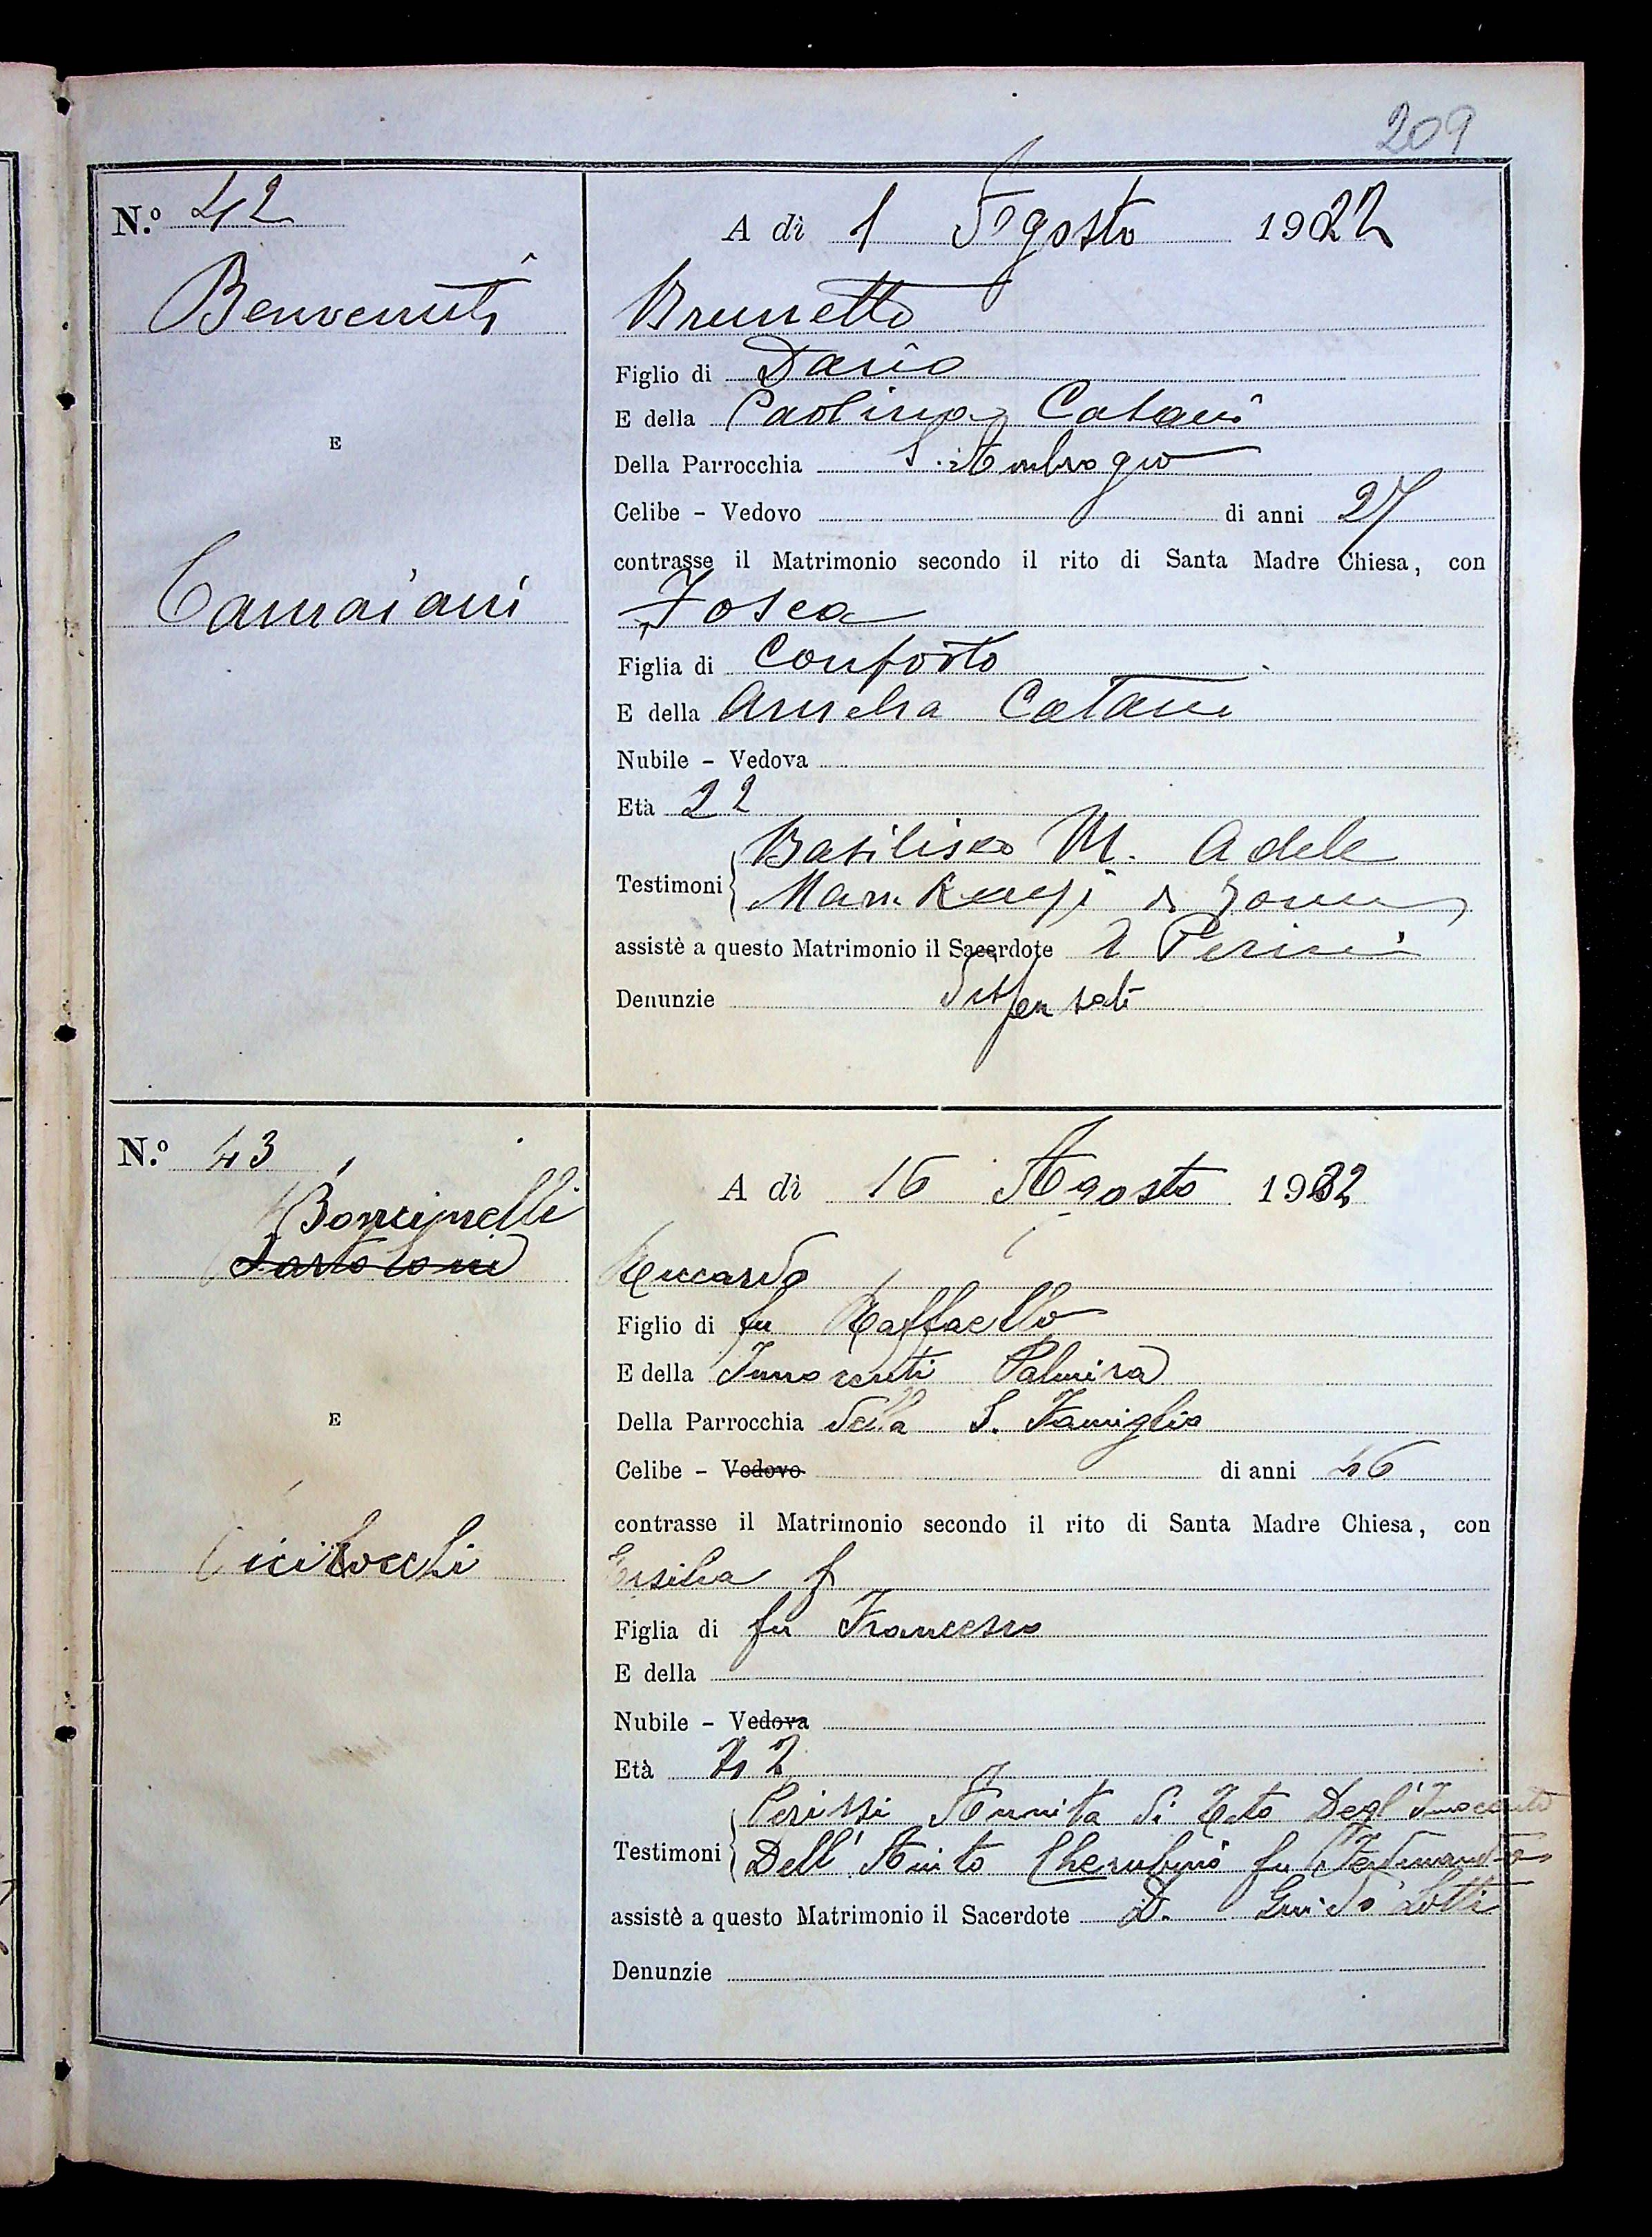 209
N.º 42
A dì 1 Agosto 1922
Benvenuti
Brunetto
Figlio di Dario
E della Paolina Catani
E
Della Parrocchia S. Ambrogio
Celibe - Vedovo di anni 27
contrasse il Matrimonio secondo il rito di Santa Madre Chiesa, con
Camaiani
Tosca
Figlia di Conforto
E della Amelia Catani
Nubile - Vedova
Età 22
Basilisco M. Adele
Testimoni
assistè a questo Matrimonio il Sacerdote Perini
Denunzie Dispensati
N.º 43
A dì 16 Agosto 1932
Boncinelli
Riccardo
Figlio di fu Raffaello
E della Innocenti Palmira
E
Della Parrocchia della S. Famiglia
Celibe - Vedovo di anni 46
contrasse il Matrimonio secondo il rito di Santa Madre Chiesa, con
Ersilia f
Figlia di fu Francesco
E della
Nubile - Vedova
Età 42
Perissi Annita di Degl'Innocenti
Testimoni Dell' Cherubino fu Ferdinando
assistè a questo Matrimonio il Sacerdote D. Guido Lotti
Denunzie